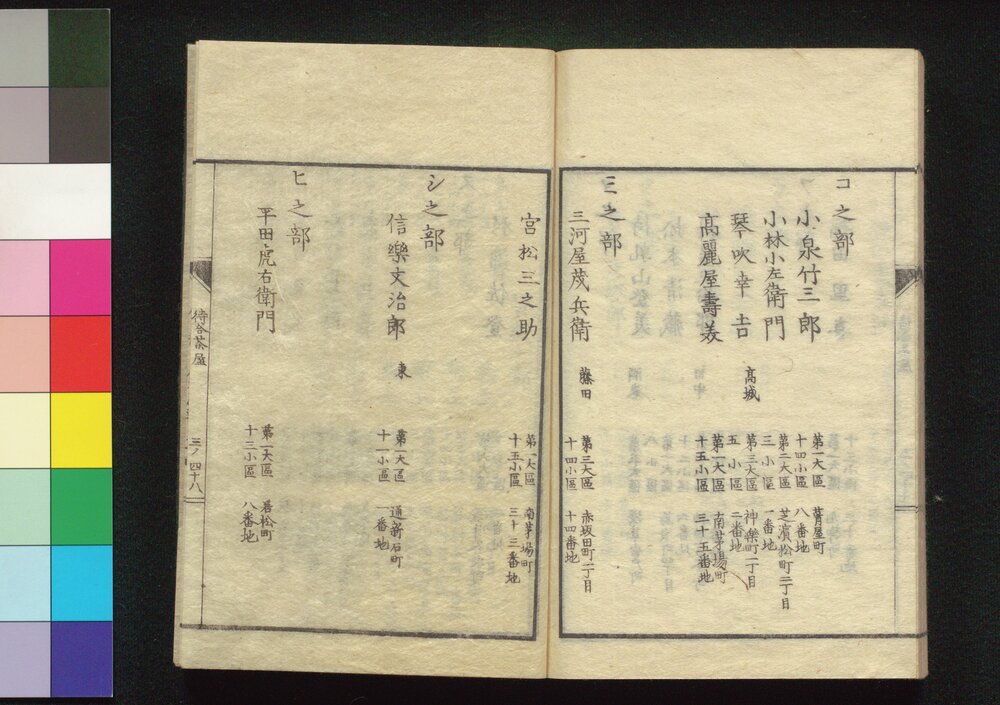 コ之部
小泉竹三郎 第一大區 十四小區 葺屋町 八番地
小林小左衛門 第二大區 三小區 芝濱松町三丁目 一番地
琴吹幸吉 高城 第三大區 五小區 神樂町一丁目 二番地
高麗屋壽美 第一大區 十五小區 南茅場町 三十五番地
ミ之部
三河屋茂兵衛 藤田 第三大區 十四小區 赤坂田町一丁目 十四番地
宮松三之助 第一大區 十五小區 南茅場町 三十三番地
シ之部
信樂文治郎 東 第一大區 十一小區 通新石町 一番地
ヒ之部
平田虎右衛門 第一大區 十三小區 若松町 八番地
待合茶屋
三ノ四十八